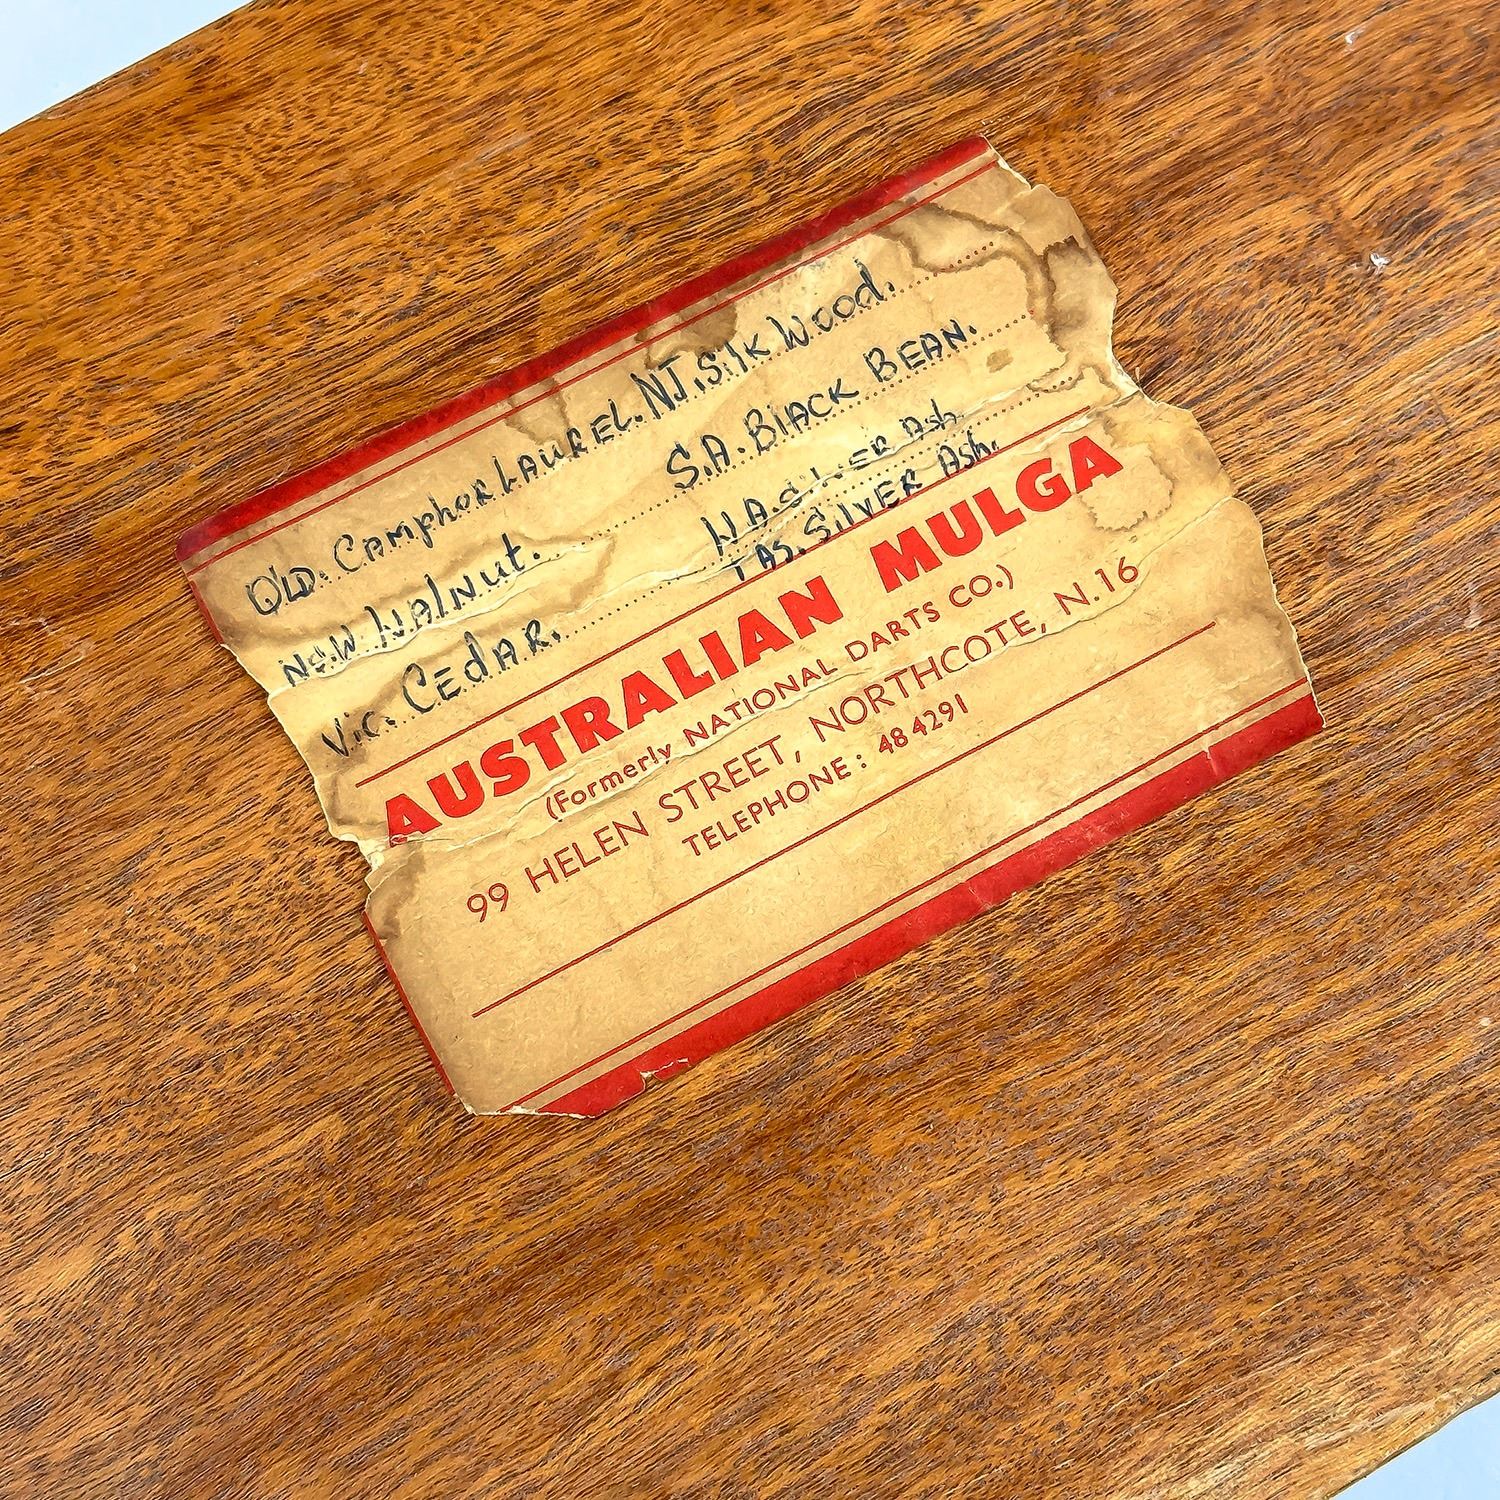 QLD. CAMphoR LAUREL. NT. Silk Wood.
NSW. WAlNut. S.A. BlACK BEAN.
Vic. CEdAR. W.A. SilVER Ash.
TAS. SilVER Ash.
AUSTRALIAN MULGA
(Formerly NATIONAL DARTS CO.)
99 HELEN STREET, NORTHCOTE, N.16
TELEPHONE: 484291